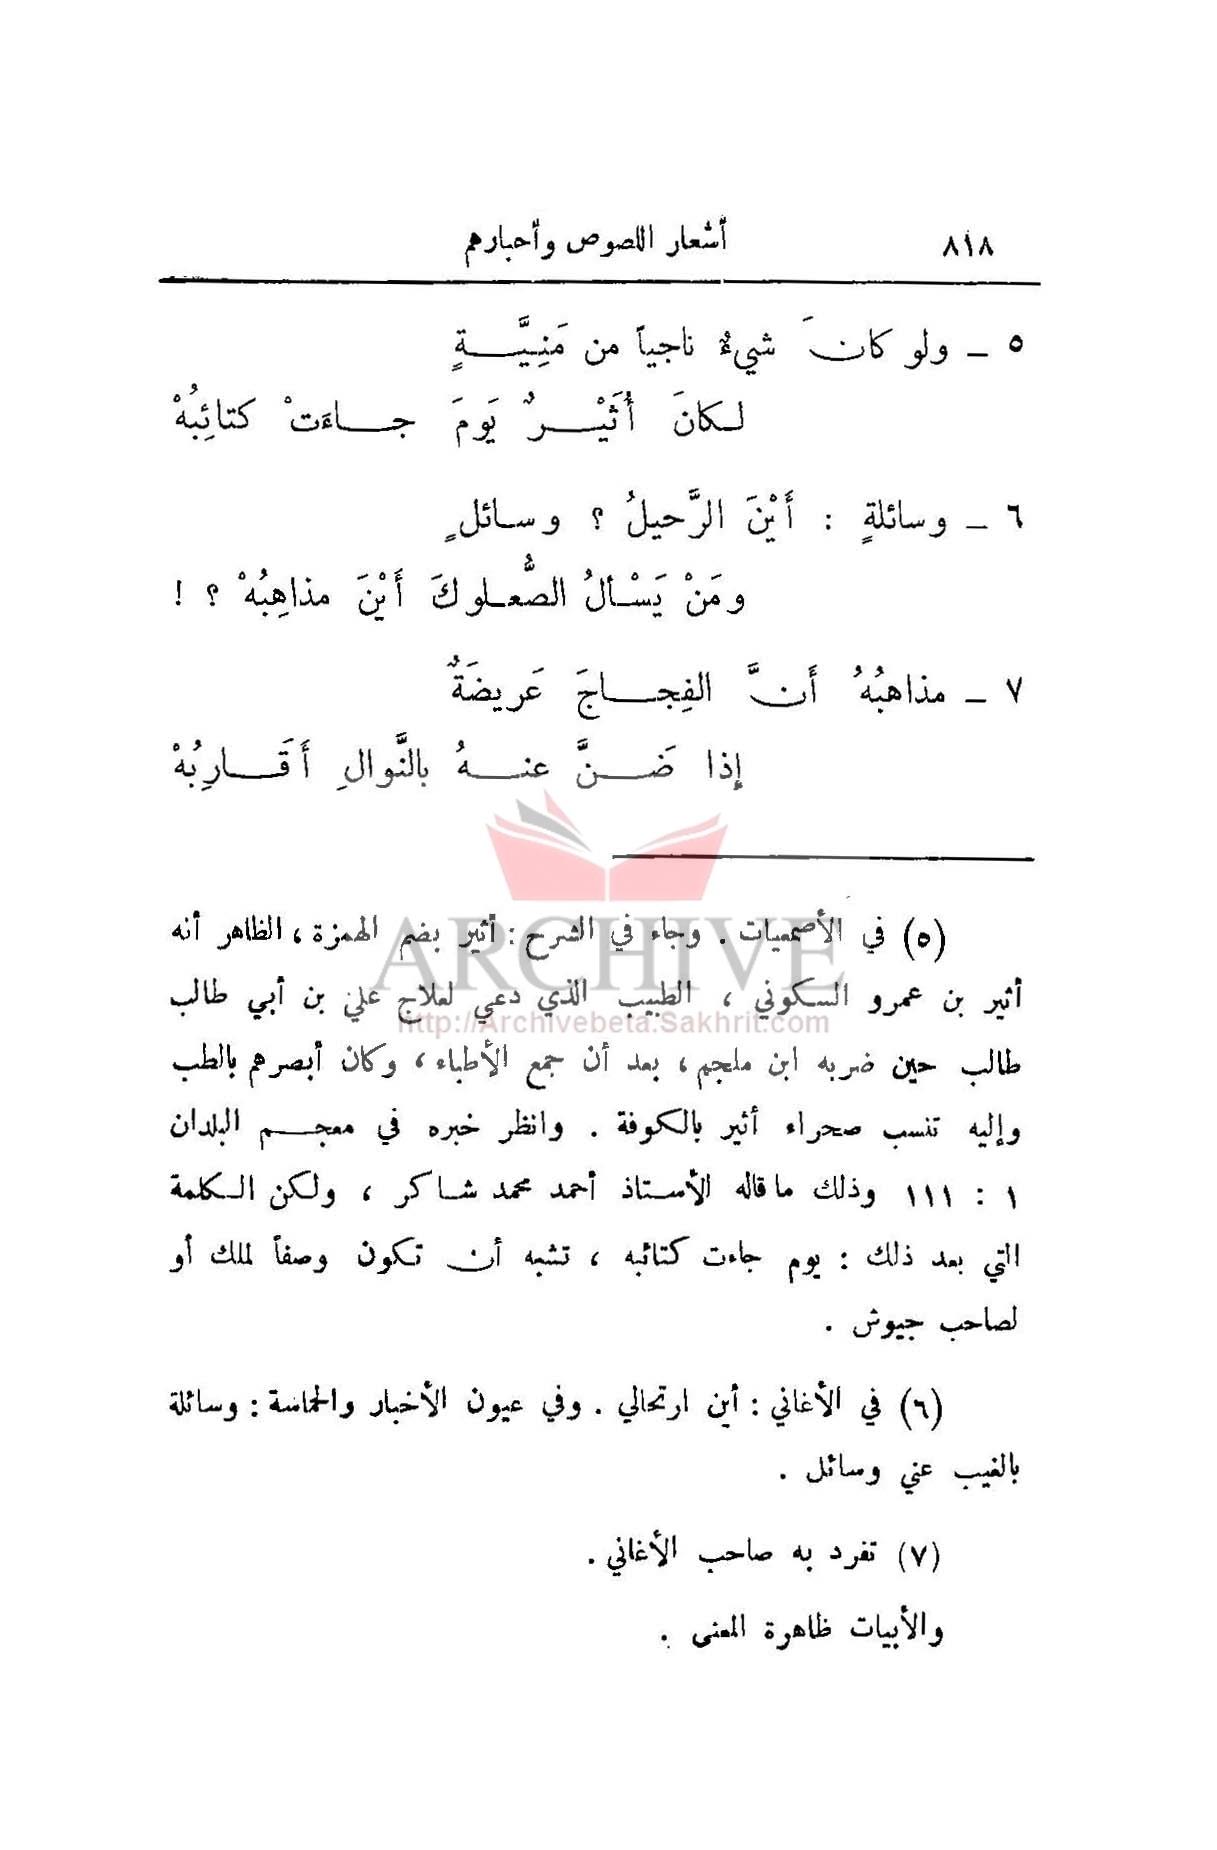 ٨١٨ أشعار اللصوص وأخبارهم
٥ ـ ولو كانَ شيءٌ ناجياً من مَنِيَّةٍ
لكانَ أُثَيْرٌ يَومَ جاءَتْ كتائِبُهْ
٦ ـ وسائلةٍ : أَيْنَ الرَّحيلُ ؟ وسائلٍ
ومَنْ يَسْألُ الصُّعلوكَ أَيْنَ مذاهِبُهْ ؟ !
٧ ـ مذاهبُهُ أَنَّ الفِجاجَ عَريضَةٌ
إذا ضَنَّ عنهُ بالنَّوالِ أَقَارِبُهْ
(٥) في الأصمعيات . وجاء في الشرح : أثير بضم الهمزة ، الظاهر أنه
أثير بن عمرو السكوني ، الطبيب الذي دعي لعلاج علي بن أبي طالب
طالب حين ضربه ابن ملجم ، بعد أن جمع الأطباء ، وكان أبصرهم بالطب
وإليه تنسب صحراء أثير بالكوفة . وانظر خبره في معجم البلدان
١ : ١١١ وذلك ما قاله الأستاذ أحمد محمد شاكر ، ولكن الكلمة
التي بعد ذلك : يوم جاءت كتائبه ، تشبه أن تكون وصفاً لملك أو
لصاحب جيوش .
(٦) في الأغاني : أين ارتحالي . وفي عيون الأخبار والحماسة : وسائلة
بالغيب عني وسائل .
(٧) تفرد به صاحب الأغاني .
والأبيات ظاهرة المعنى .
ARCHIVE
http://Archivebeta.Sakhrit.com